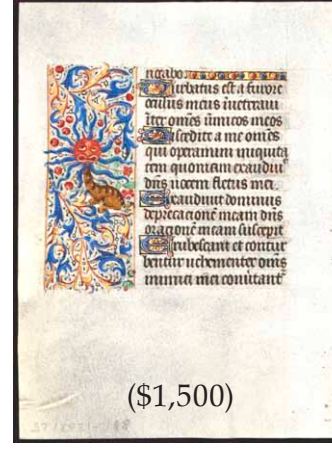 rigabo
Turbatus est a furore
oculus meus inveteravi
inter omēs inimicos meos
Discedite a me omēs
qui operamini iniquita
tem quoniam exaudivit
dn̄s vocem fletus mei
Exaudivit dominus
deprecationē meam dn̄s
orationē meam suscepit
Erubescant et contur
bentur vehementer omēs
inimici mei convertant
($1,500)